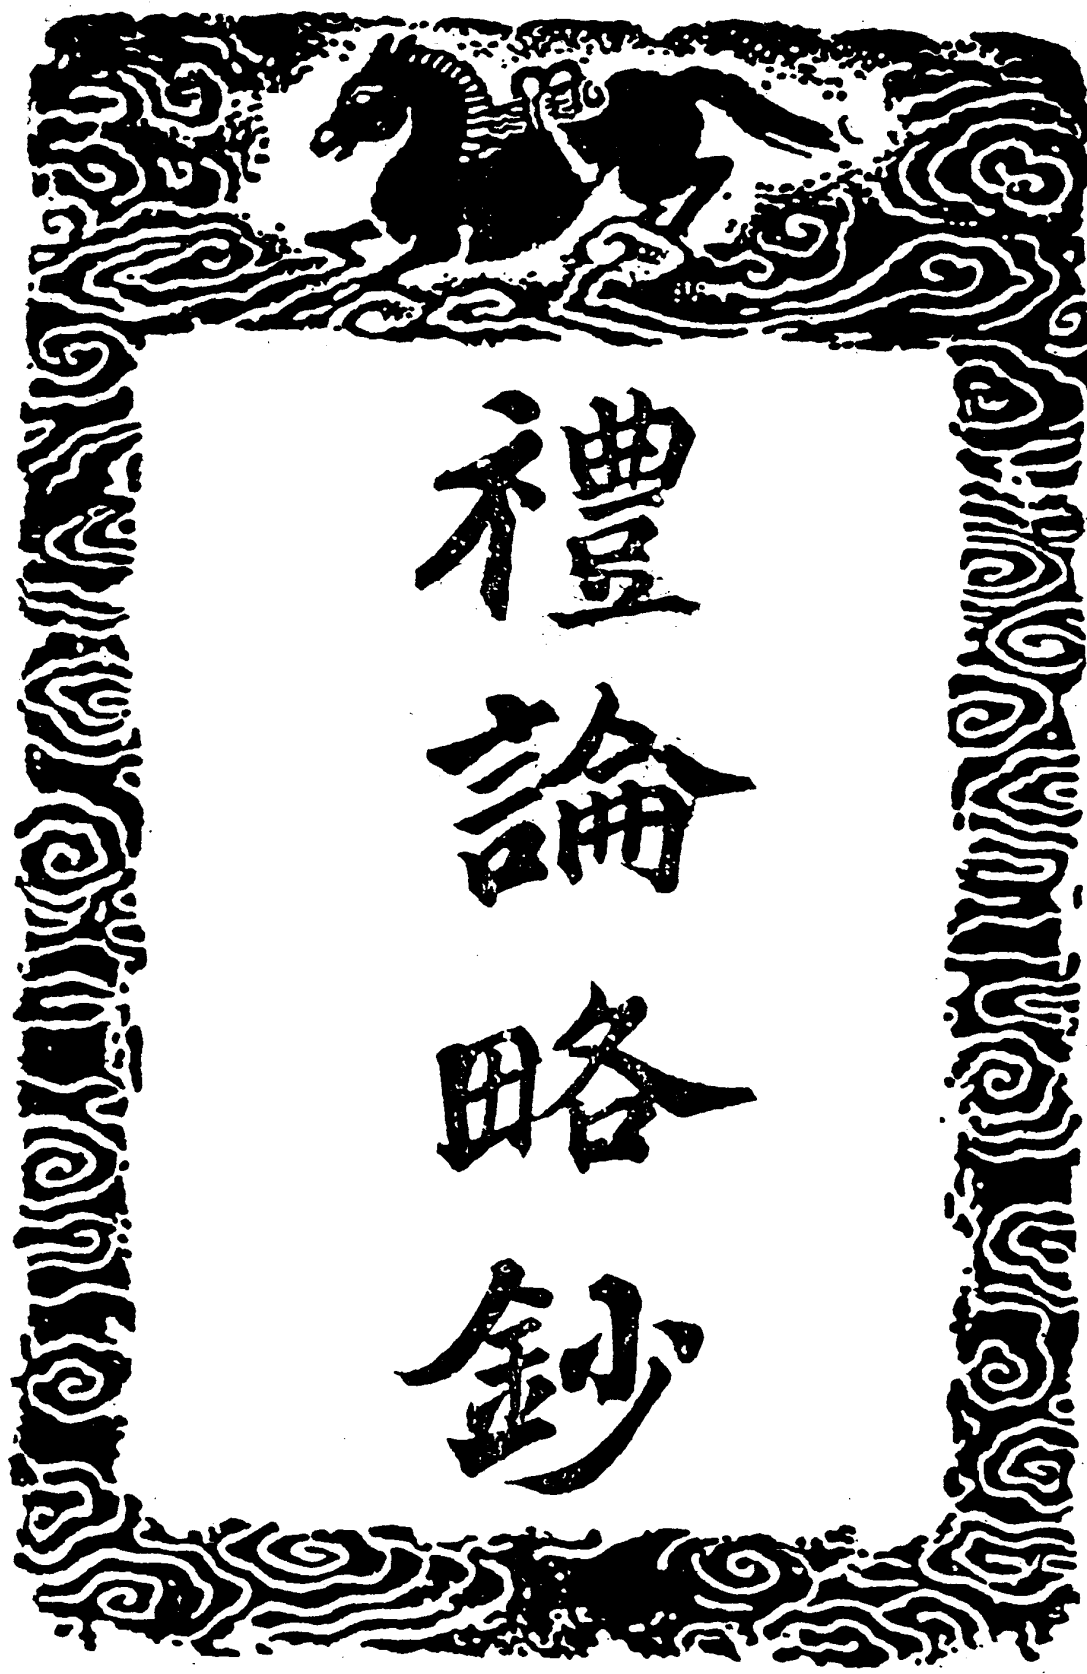 禮論略鈔